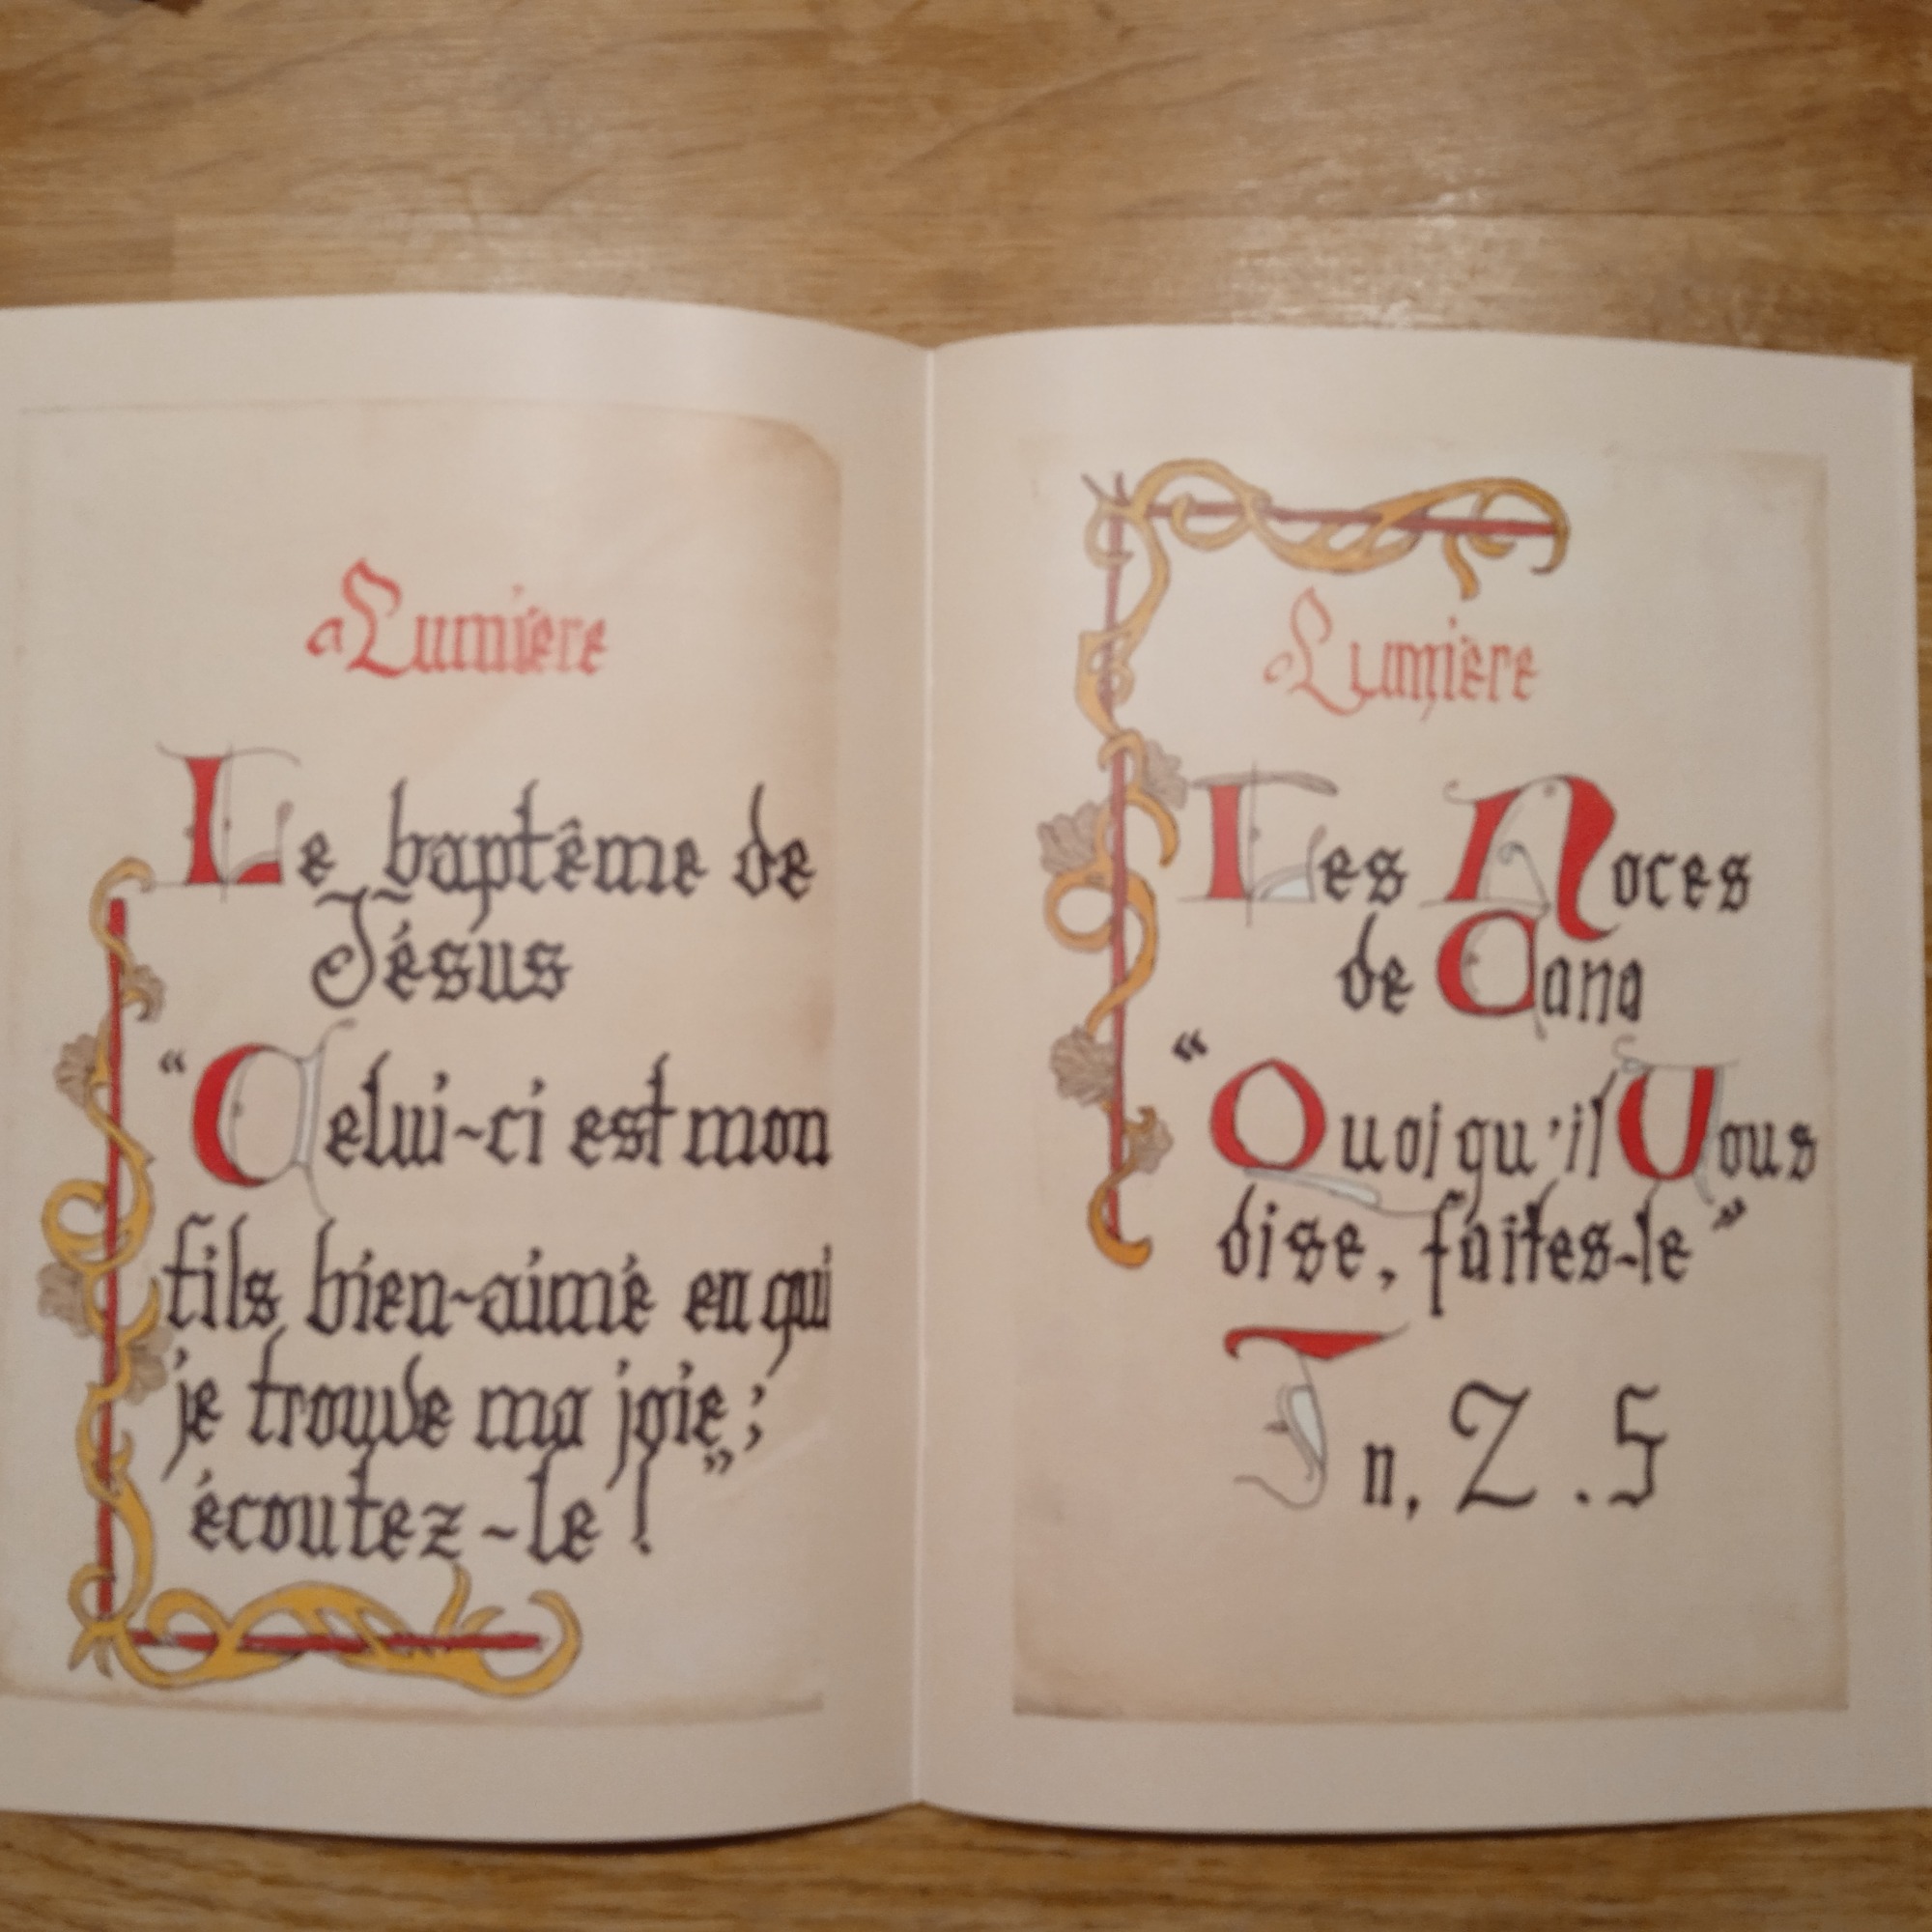 Lumière
Le baptême de
Jésus
"Celui-ci est mon
fils bien-aimé en qui
je trouve ma joie ;
écoutez-le !"
Lumière
Les Noces
de Cana
"Quoi qu'il Vous
dise, faites-le"
Jn, 2.5